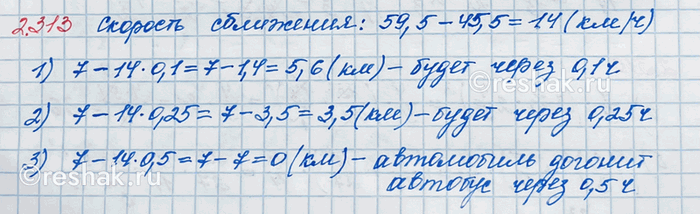 2.313 Скорость сближения: 59,5-45,5=14(км/ч)
1) 7-14·0,1=7-1,4=5,6(км)-будет через 0,1ч
2) 7-14·0,25=7-3,5=3,5(км)-будет через 0,25ч
3) 7-14·0,5=7-7=0(км)-автомобиль догонит
автобус через 0,5ч
©reshak.ru
©reshak.ru